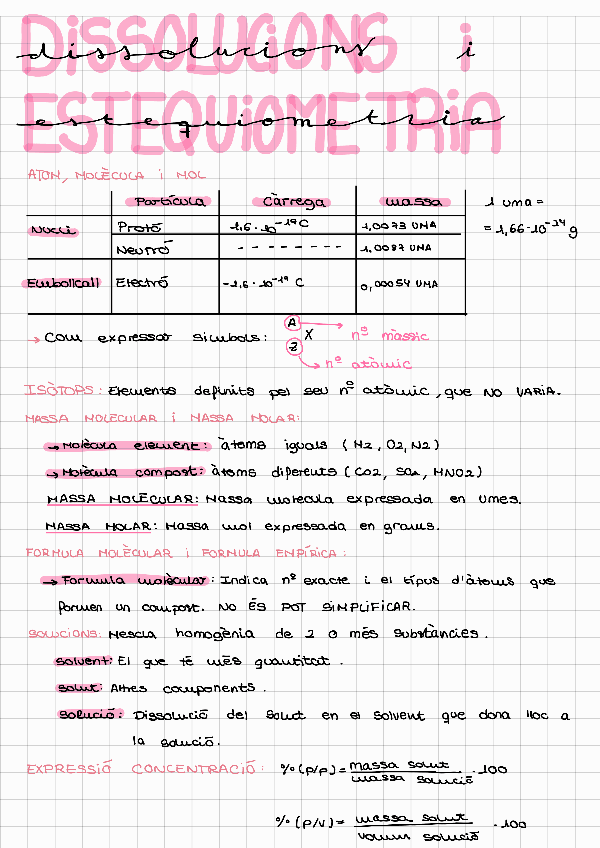 dissolucions i
estequiometria
ATOM, MOLÈCULA i MOL
Partícula Càrrega massa 1 uma =
Nucli Protó 1,6·10⁻¹⁹C 1,0073 UMA = 1,66·10⁻²⁴g
Neutró - - - - - - - - 1.0087 UMA
Embolcall Electró -1,6·10⁻¹⁹ C 0,00054 UMA
→ Com expressar símbols: A X → nº màssic
Z → nº atòmic
ISÒTOPS: Elements definits pel seu nº atòmic, que NO VARIA.
MASSA MOLECULAR i MASSA MOLAR:
→ Molècula element: àtoms iguals (H2, O2, N2)
→ Molècula compost: àtoms diferents (CO2, SO4, HNO2)
MASSA MOLECULAR: Massa molecula expressada en umes.
MASSA MOLAR: Massa mol expressada en grams.
FORMULA MOLÈCULAR i FORMULA EMPÍRICA:
→ Formula molècular: Indica nº exacte i el típus d'àtoms que
formen un compost. NO ÉS POT SIMPLIFICAR.
SOLUCIONS: Mescla homogènia de 2 o més substàncies.
solvent: El que té més quantitat.
solut: Altres components.
solució: Dissolució del solut en el solvent que dona lloc a
la solució.
EXPRESSIÓ CONCENTRACIÓ: %(P/P) = massa solut / massa solució · 100
%(P/V) = massa solut / volum solució · 100